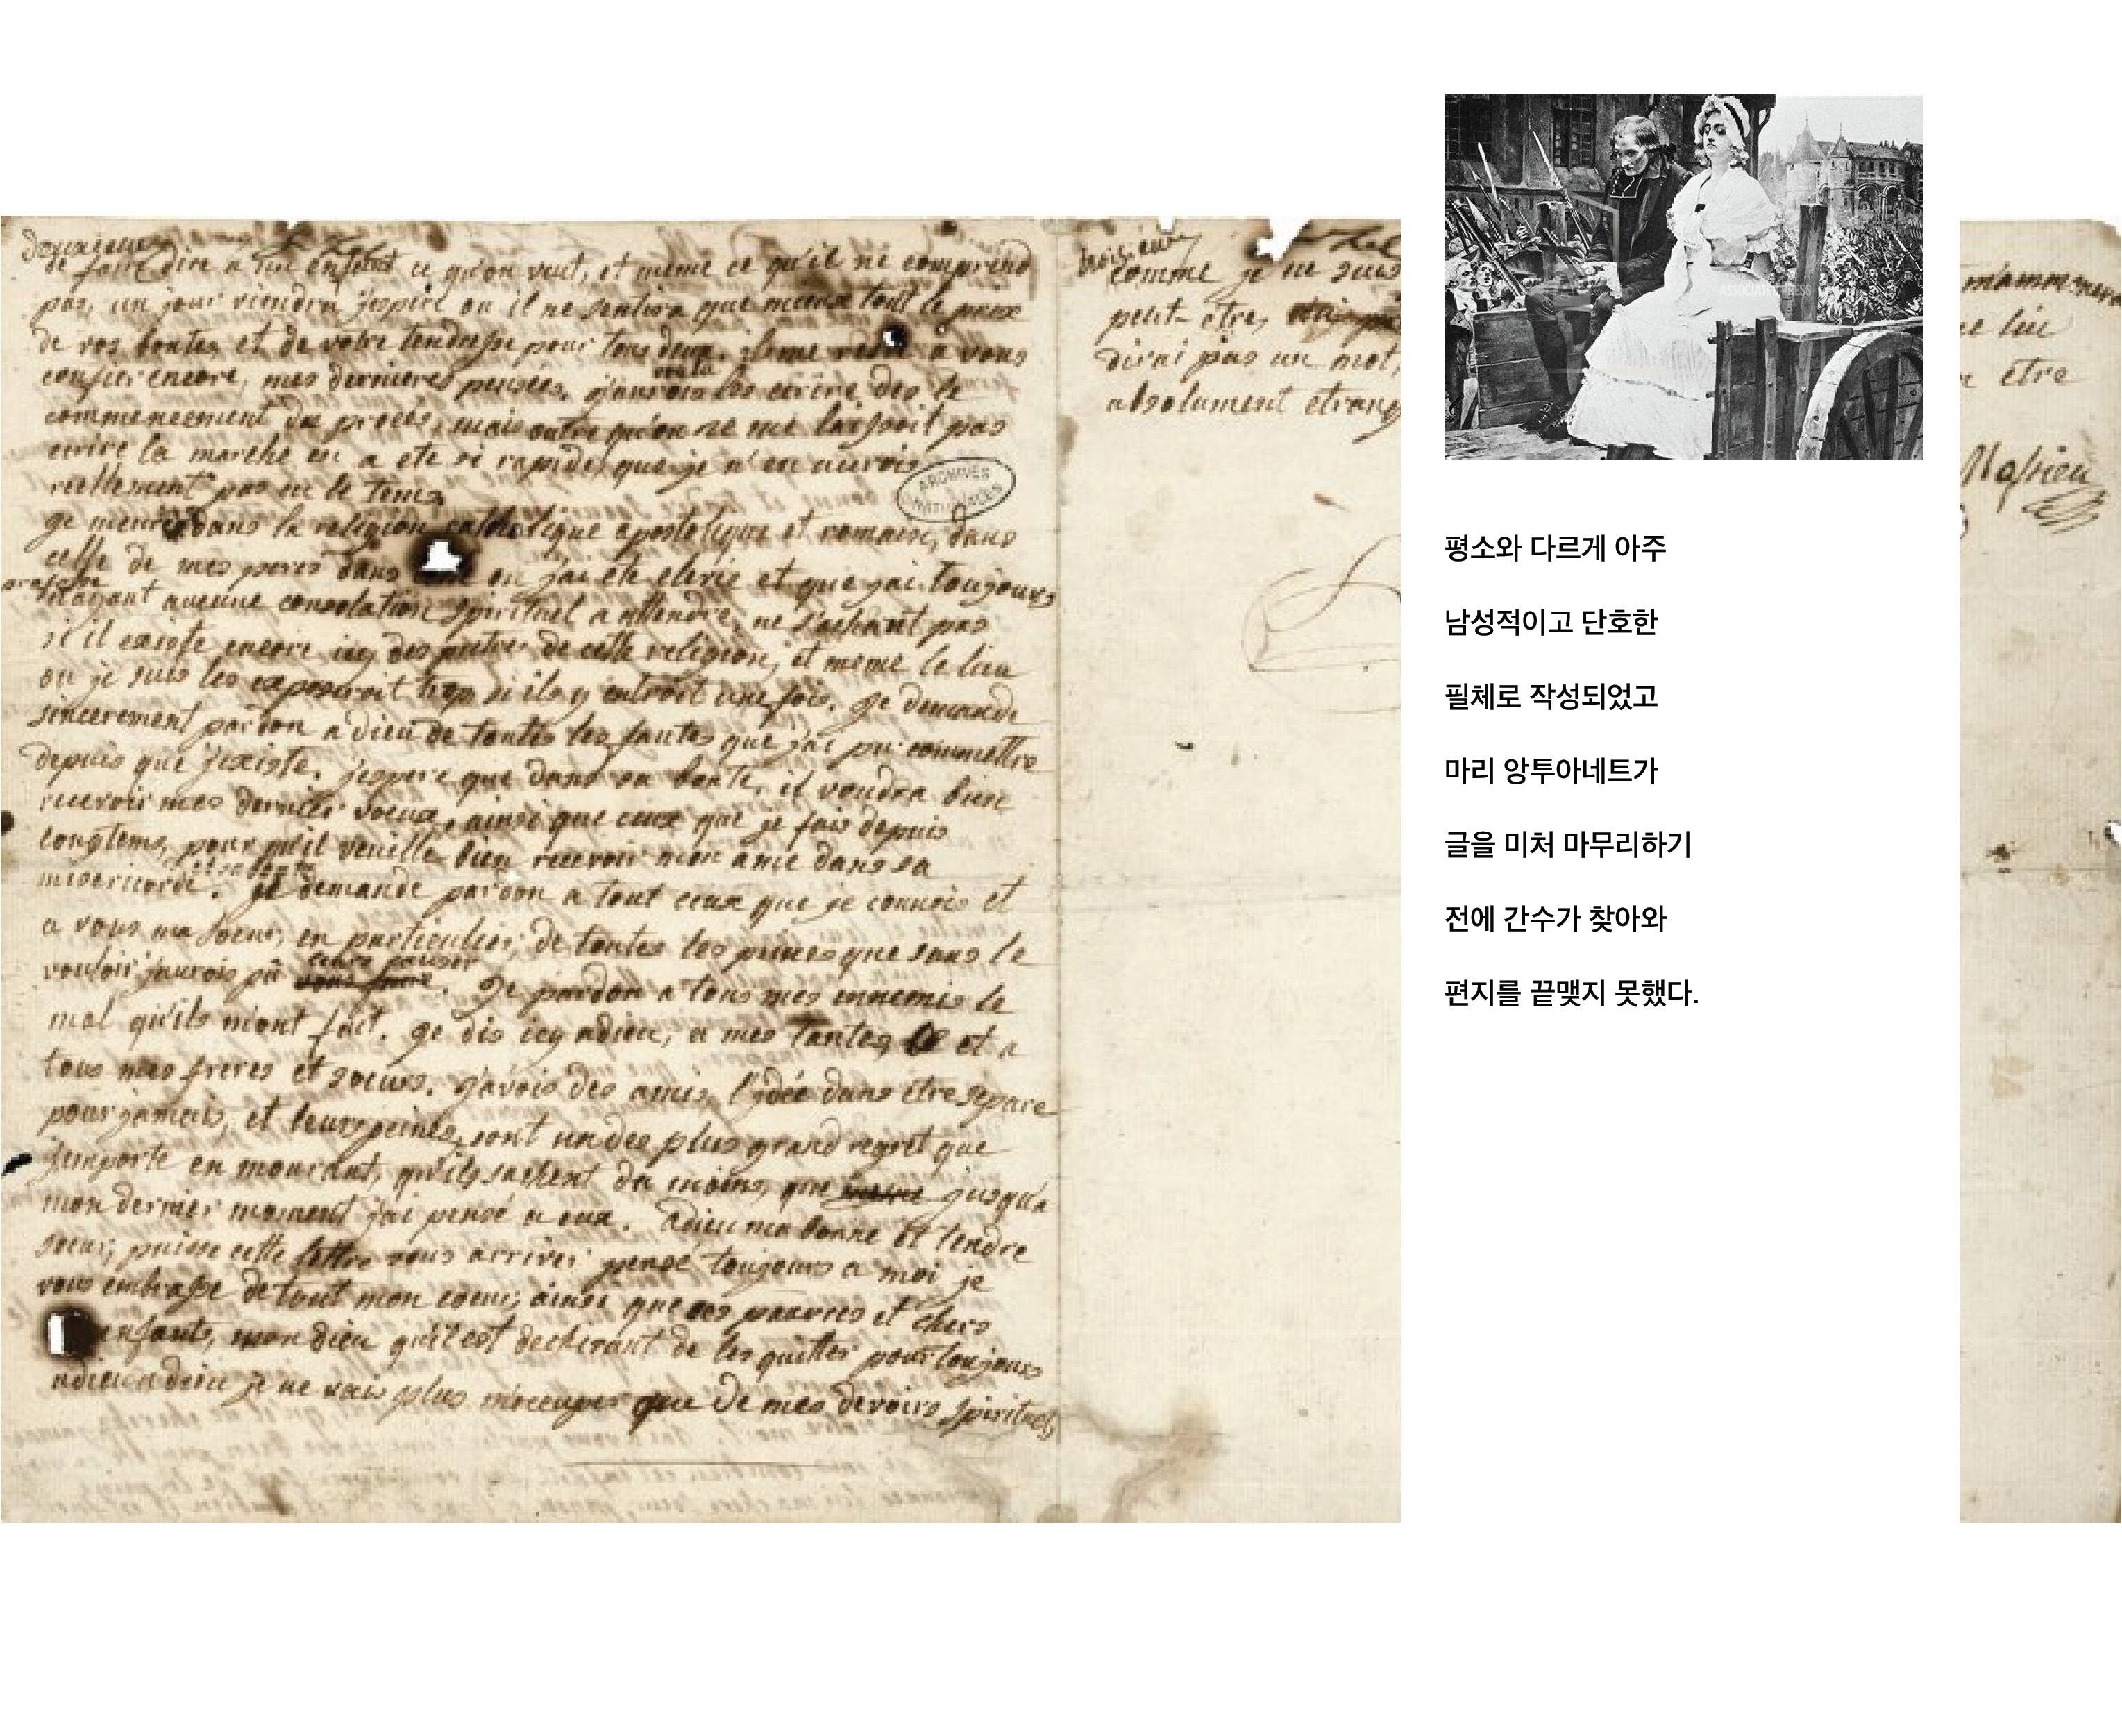 douxieme
de faire dire a un enfant ce qu'on veut, et même ce qu'il ne comprend
pas, un jour viendra j'espere ou il ne sentira que mieux tout le prix
de vos bontes et de votre tendresse pour tous deux. il me reste a vous
confier encore, mes dernieres pensées. j'aurois voulu les ecrire des le
commencement du procès, mais outre qu'on ne me laissoit pas
ecrire la marche en a ete si rapide, que je n'en aurois
reellement pas eu le tems
ARCHIVES
NATIONALES
je meurs dans la religion catholique apostolique et romaine, dans
celle de mes peres dans ou j'ai ete elevée et que j'ai toujours
professée
n'ayant aucune consolation spirituel a attendre, ne sachant pas
si il existe encore icy des pretres de cette religion, et meme le lieu
ou je suis les exposeroit trop si ils y entroit une fois. je demande
sincerement pardon a dieu de toutes les fautes que j'ai pu commettre
depuis que j'existe. j'espere que dans sa bonté, il voudra bien
recevoir mes dernier voeux, ainsi que ceux que je fais depuis
longtems, pour qu'il veuille bien recevoir mon ame dans sa
misericorde et sa bonté. je demande pardon a tout ceux que je connois et
a vous ma soeur, en particulier, de toutes les peines que sans le
vouloir j'aurois pû leurs causer. je pardon a tous mes ennemis le
mal qu'ils m'ont fait. je dis icy adieu, a mes tantes et a
tous mes freres et soeurs. j'avois des amis, l'idée dans etre separe
pour jamais, et leurs peines, sont un des plus grand regret que
j'emporte en mourant, qu'ils sachent du moins, que jusqu'a
mon dernier moment j'ai pensé a eux. adieu ma bonne et tendre
soeur; puisse cette lettre vous arriver pensé toujours a moi je
vous embrasse de tout mon coeur, ainsi que ces pauvres et chers
enfants, mon dieu qu'il est dechirant de les quitter pour toujours
adieu adieu je ne vais plus m'occuper que de mes devoirs spirituel,
troisieme
comme je ne suis
peut-etre,
dirai pas un mot,
absolument etrang
평소와 다르게 아주
남성적이고 단호한
필체로 작성되었고
마리 앙투아네트가
글을 미처 마무리하기
전에 간수가 찾아와
편지를 끝맺지 못했다.
m'ammenera
etre
Massieu